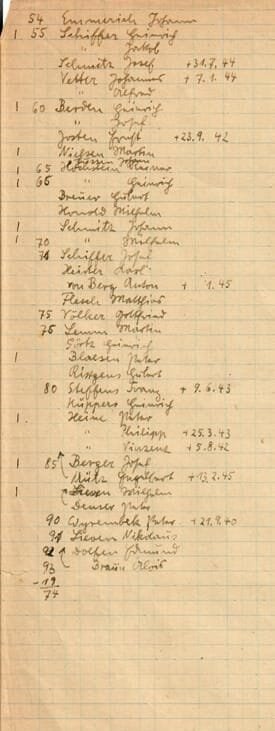 54 Emmerich Johann
1 55 Schiffer Heinrich
" Jakob
Schmitz Josef +31.7.44
Vetter Johannes +7.1.44
" Alfred
1 60 Berden Heinrich
" Josef
Josten Ernst +23.9.42
1 Nießen Martin
" Johann
1 65 Hochstein Werner
1 66 " Heinrich
Breuer Hubert
Honold Wilhelm
1 Schmitz Johann
1 70 " Wilhelm
71 Schiffer Josef
Heider Karl
von Berg Anton + 1.45
Flesch Matthias
75 Völker Gottfried
76 Lemm Martin
Görtz Heinrich
1 Blaesen Peter
Rißgens Hubert
80 Steffens Franz +9.6.43
Küppers Heinrich
1 Heine Peter
" Philipp +25.3.43
" Vinzent +5.8.42
1 85 Berger Josef
Mütz Engelbert +13.2.45
1 Lieven Wilhelm
Denser Peter
90 Wyrembek Peter +21.9.40
91 Lieven Nikolaus
92 Dolfen Edmund
93 Braun Alois
-19
74